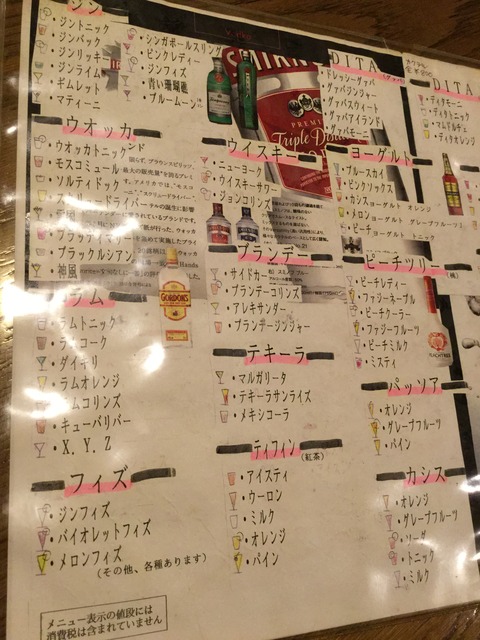 ジン
・ジントニック
・ジンバック
・ジンリッキー
・ジンライム
・ギムレット
・マティーニ
・シンガポールスリング
・ピンクレディー
・ジンフィズ
・青い珊瑚礁
・ブルームーン
SMIRNOFF
PREMIUM
Triple
DITA
(グァバ)
・ドレッシーグァバ
・グァバジンジャー
・グァバスウィート
・グァバアイランド
・グァバモーニ
DITA
・ディタモーニ
・ディタトニック
・マムドルチェ
・ディタオレンジ
ウオッカ
・ウオッカトニック
・モスコミュール
・ソルティドック
・スクリュードライバー
・ブラッディマリー
・ブラックルシアン
・神風
GORDON'S
ウイスキー
・ニューヨーク
・ウイスキーサワー
・ジョンコリンズ
ヨーグルト
・ブルースカイ
・ピンクソックス
・カシスヨーグルト オレンジ
・メロンヨーグルト グレープフルーツ
・ピーチヨーグルト トニック
ブランデー
・サイドカー
・ブランデーコリンズ
・アレキサンダー
・ブランデージンジャー
ピーチツリー
(桃)
・ピーチレディー
・ファジーネーブル
・ピーチクーラー
・ファジーフルーツ
・ピーチミルク
・ミスティ
ラム
・ラムトニック
・ラムコーク
・ダイキリ
・ラムオレンジ
・ラムコリンズ
・キューバリバー
・X.Y.Z
テキーラ
・マルガリータ
・テキーラサンライズ
・メキシコーラ
パッソア
・オレンジ
・グレープフルーツ
・パイン
フィズ
・ジンフィズ
・バイオレットフィズ
・メロンフィズ
(その他、各種あります)
ティフィン(紅茶)
・アイスティ
・ウーロン
・ミルク
・オレンジ
・パイン
カシス
・オレンジ
・グレープフルーツ
・ソーダ
・トニック
・ミルク
メニュー表示の値段には
消費税は含まれていません